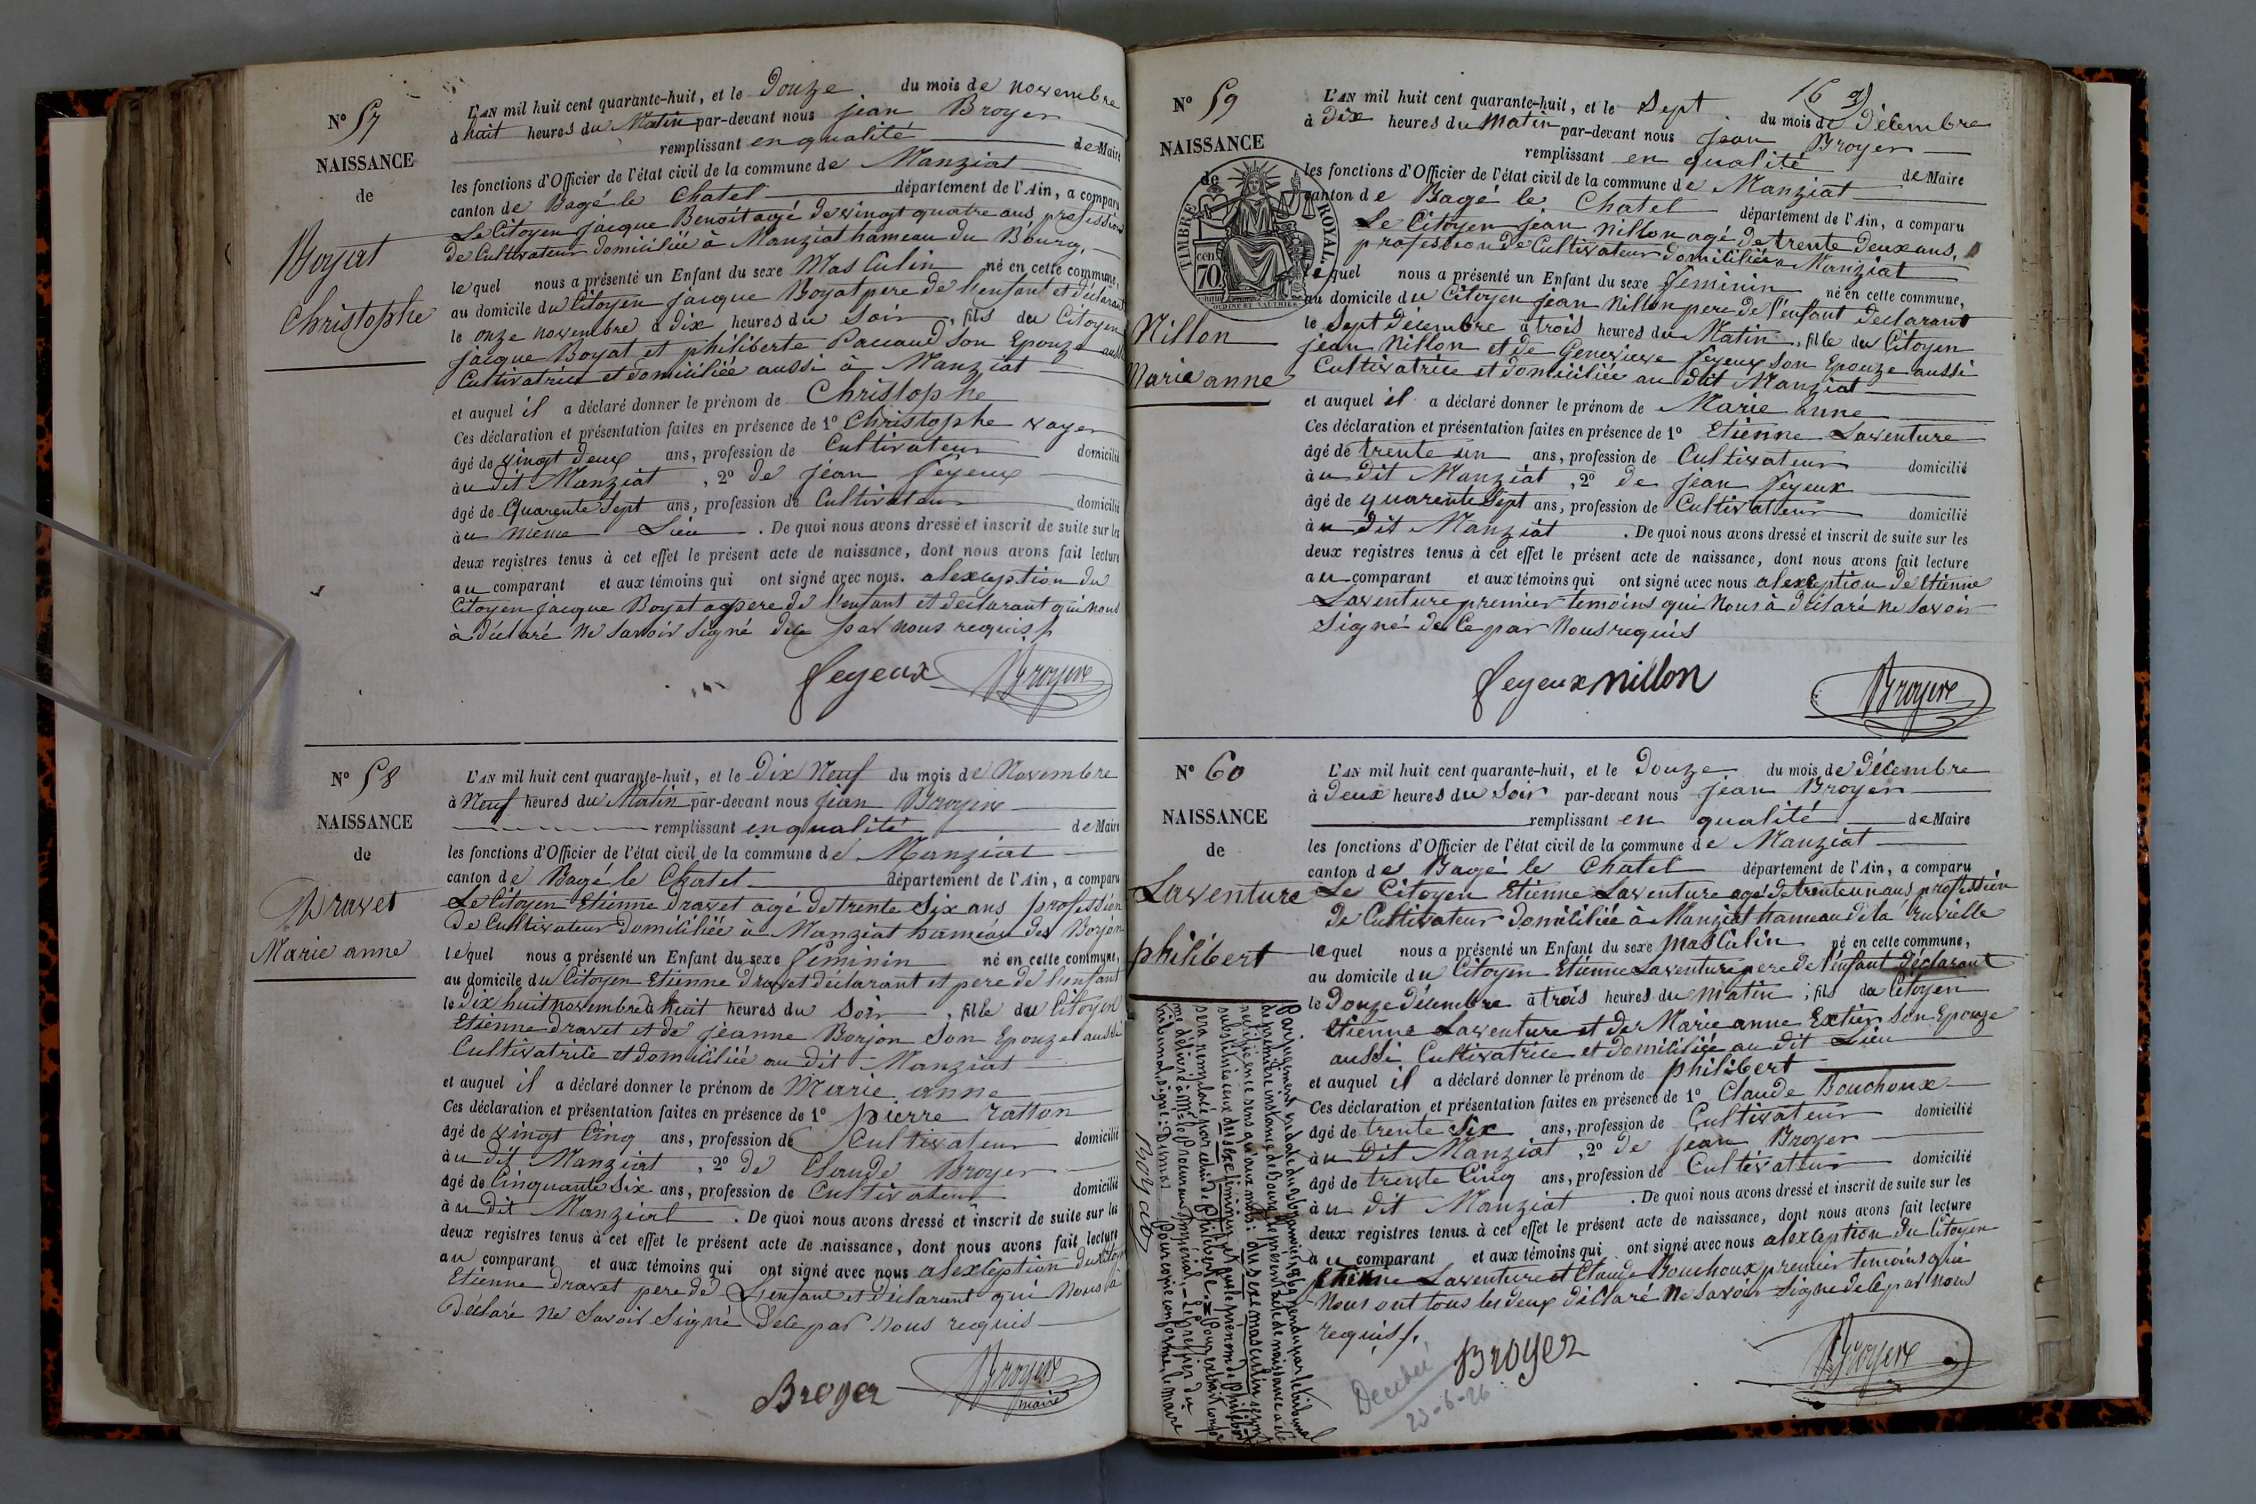 N° 57
NAISSANCE
de
Boyat
Christophe
L'AN mil huit cent quarante-huit, et le Douze du mois de novembre
à huit heures du Matin par-devant nous jean Broyer
remplissant en qualité de Maire
les fonctions d'Officier de l'état civil de la commune de Manziat
canton de Bagé le Chatel département de l'Ain, a comparu
Le Citoyen jacque Benoit agé de vingt quatre ans profession
de Cultivateur domiciliée à Manziat hameau du Bourg,
lequel nous a présenté un Enfant du sexe Masculin né en cette commune,
au domicile du Citoyen jacque Boyat pere de l'enfant et déclarant
le onze novembre à dix heures du soir, fils du Citoyen
jacque Boyat et philiberte Paccaud son Epouze aussi
Cultivatrice et domiciliée aussi à Manziat
et auquel il a déclaré donner le prénom de Christophe
Ces déclaration et présentation faites en présence de 1° Christophe voyer
âgé de vingt deux ans, profession de Cultivateur domicilié
au dit Manziat, 2° de jean feyeux
âgé de Quarente Sept ans, profession de Cultivateur domicilié
au même Lieu. De quoi nous avons dressé et inscrit de suite sur les
deux registres tenus à cet effet le présent acte de naissance, dont nous avons fait lecture
au comparant et aux témoins qui ont signé avec nous. alexception du
Citoyen jacque Boyat pere de l'enfant et declarant qui nous
à déclaré ne savoir signé dece par nous requis
feyeux Broyer
N° 58
NAISSANCE
de
Dravet
Marie anne
L'AN mil huit cent quarante-huit, et le Dix Neuf du mois de Novembre
à Neuf heures du Matin par-devant nous jean Broyer
remplissant en qualité de Maire
les fonctions d'Officier de l'état civil de la commune de Manziat
canton de Bagé le Chatel département de l'Ain, a comparu
Le Citoyen Etienne dravet agé de trente Six ans profession
de Cultivateur domiciliée à Manziat hameau des Borjon
lequel nous a présenté un Enfant du sexe feminin né en cette commune,
au domicile du Citoyen Etienne dravet déclarant et pere de l'enfant
le dix huit novembre à huit heures du Soir, fille du Citoyen
Etienne dravet et de jeanne Borjon son Epouze aussi
Cultivatrice et domiciliée au dit Manziat
et auquel il a déclaré donner le prénom de Marie anne
Ces déclaration et présentation faites en présence de 1° pierre ratton
âgé de vingt Cinq ans, profession de Cultivateur domicilié
au dit Manziat, 2° de Claude Broyer
âgé de Cinquante Six ans, profession de Cultivateur domicilié
au dit Manziat. De quoi nous avons dressé et inscrit de suite sur les
deux registres tenus à cet effet le présent acte de naissance, dont nous avons fait lecture
au comparant et aux témoins qui ont signé avec nous alexception du Citoyen
Etienne dravet pere de L'enfant et déclarant qui Nous à
déclaré ne Savoir Signé dece par Nous requis
Broyer Broyer
maire
169
N° 59
NAISSANCE
de
TIMBRE ROYAL
70 cen
Nillon
Marie anne
L'AN mil huit cent quarante-huit, et le Sept du mois de décembre
à dix heures du Matin par-devant nous jean Broyer
remplissant en qualité de Maire
les fonctions d'Officier de l'état civil de la commune de Manziat
canton de Bagé le Chatel département de l'Ain, a comparu
Le Citoyen jean nillon agé de trente deux ans,
profession de Cultivateur domiciliée a Manziat
lequel nous a présenté un Enfant du sexe feminin né en cette commune,
au domicile du Citoyen jean Nillon pere de l'enfant declarant
le Sept décembre à trois heures du Matin, fille du Citoyen
jean Nillon et de Genevieve feyeux Son Epouze aussi
Cultivatrice et domiciliée au dit Manziat
et auquel il a déclaré donner le prénom de Marie anne
Ces déclaration et présentation faites en présence de 1° Etienne Laventure
âgé de trente un ans, profession de Cultivateur domicilié
au dit Manziat, 2° de jean feyeux
âgé de quarente Sept ans, profession de Cultivateur domicilié
au dit Manziat. De quoi nous avons dressé et inscrit de suite sur les
deux registres tenus à cet effet le présent acte de naissance, dont nous avons fait lecture
au comparant et aux témoins qui ont signé avec nous alexception de Etienne
Laventure premier temoins qui Nous à déclaré ne Savoir
Signé de Ce par Nous requis
feyeux nillon Broyer
N° 60
NAISSANCE
de
Laventure
philibert
L'AN mil huit cent quarante-huit, et le Douze du mois de décembre
à deux heures du Soir par-devant nous jean Broyer
remplissant en qualité de Maire
les fonctions d'Officier de l'état civil de la commune de Manziat
canton de Bagé le Chatel département de l'Ain, a comparu
Le Citoyen Etienne Laventure agé de trente un ans profession
de Cultivateur domiciliée à Manziat hameau de la
lequel nous a présenté un Enfant du sexe masculin né en cette commune,
au domicile du Citoyen Etienne Laventure pere de l'enfant déclarant
le Douze décembre à trois heures du Matin, fils du Citoyen
Etienne Laventure et de Marie anne Extier Son Epouze
aussi Cultivatrice et domiciliée au dit Lieu
et auquel il a déclaré donner le prénom de philibert
Ces déclaration et présentation faites en présence de 1° Claude Bouchoux
âgé de trente Six ans, profession de Cultivateur domicilié
au dit Manziat, 2° de jean Broyer
âgé de trente Cinq ans, profession de Cultivateur domicilié
au dit Manziat. De quoi nous avons dressé et inscrit de suite sur les
deux registres tenus à cet effet le présent acte de naissance, dont nous avons fait lecture
au comparant et aux témoins qui ont signé avec nous alexception du Citoyen
Etienne Laventure et Claude Bouchoux premier temoins qui
Nous ont tous les deux déclaré Ne Savoir Signé dece par nous
requis
Broyer Broyer
23-6-26
Par jugement en date du 1869 rendu par le tribunal
de première instance de Bourg, le présent acte de naissance a été
rectifié en ce sens qu'aux mots: du sexe masculin seront
substitués ceux du sexe féminin, et que le prénom de Philibert
sera remplacé par celui de Philiberte. Pour extrait conforme
délivré à Mr le Procureur Impérial. Le greffier du
tribunal, signé: Pour copie conforme, le maire
Boyat